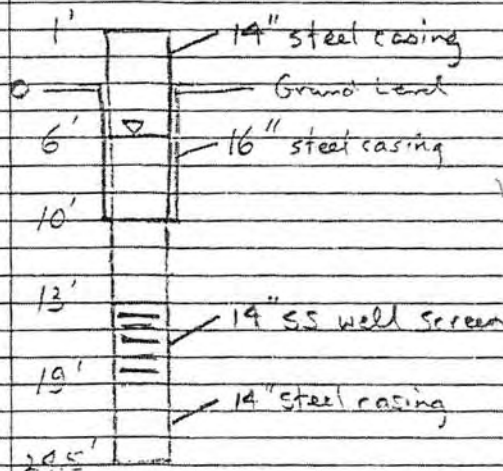 1' 14" steel casing
0 Ground Level
6' 16" steel casing
10'
13'
14" SS well screen
19'
14" steel casing